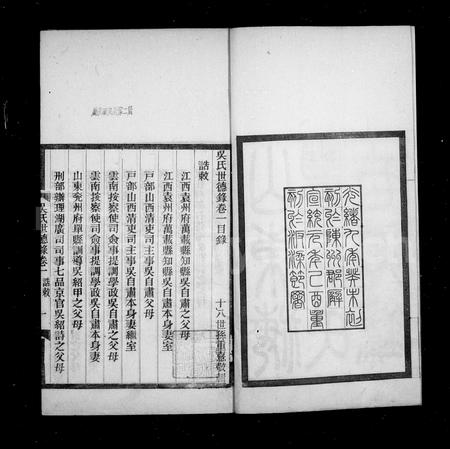 光緒九年癸未初
刻於陳州郡廨
宣統元年己酉重
刻於汴梁節署
吳氏世德錄卷一目錄
十八世孫重憙敬
誥敕
江西袁州府萬載縣知縣吳自肅本身妻室
江西袁州府萬載縣知縣吳自肅父母
戶部山西清吏司主事吳自肅本身妻繼室
戶部山西清吏司主事吳自肅父母
雲南按察使司僉事提調學政吳自肅父母
雲南按察使司僉事提調學政吳自肅本身妻
山東兗州府單縣訓導吳紹甲之父母
刑部辦理湖廣司司事七品京官吳紹詩之父母
吳氏世德錄卷一 誥敕 一